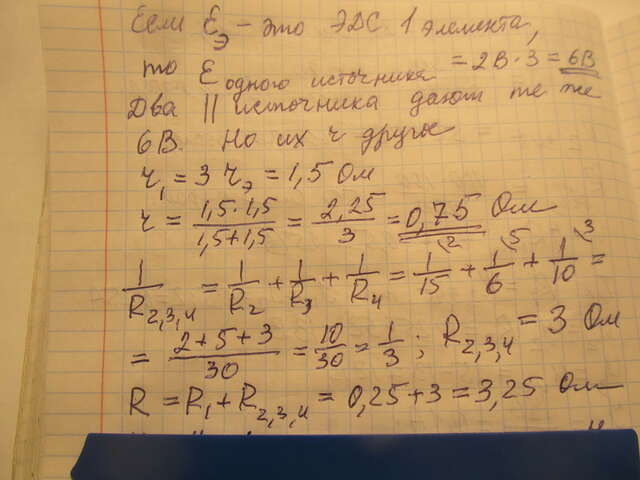 Если Ɛэ - это ЭДС 1 элемента,
то Ɛ одного источника = 2В·3 = 6В
Два || источника дают те же
6В. Но их r другое
r₁ = 3 rэ = 1,5 Ом
r = 1,5·1,5 / 1,5+1,5 = 2,25 / 3 = 0,75 Ом
1/R₂,₃,₄ = 1/R₂ + 1/R₃ + 1/R₄ = 1/15 \2 + 1/6 \5 + 1/10 \3 =
= 2+5+3 / 30 = 10/30 = 1/3 ; R₂,₃,₄ = 3 Ом
R = R₁ + R₂,₃,₄ = 0,25 + 3 = 3,25 Ом